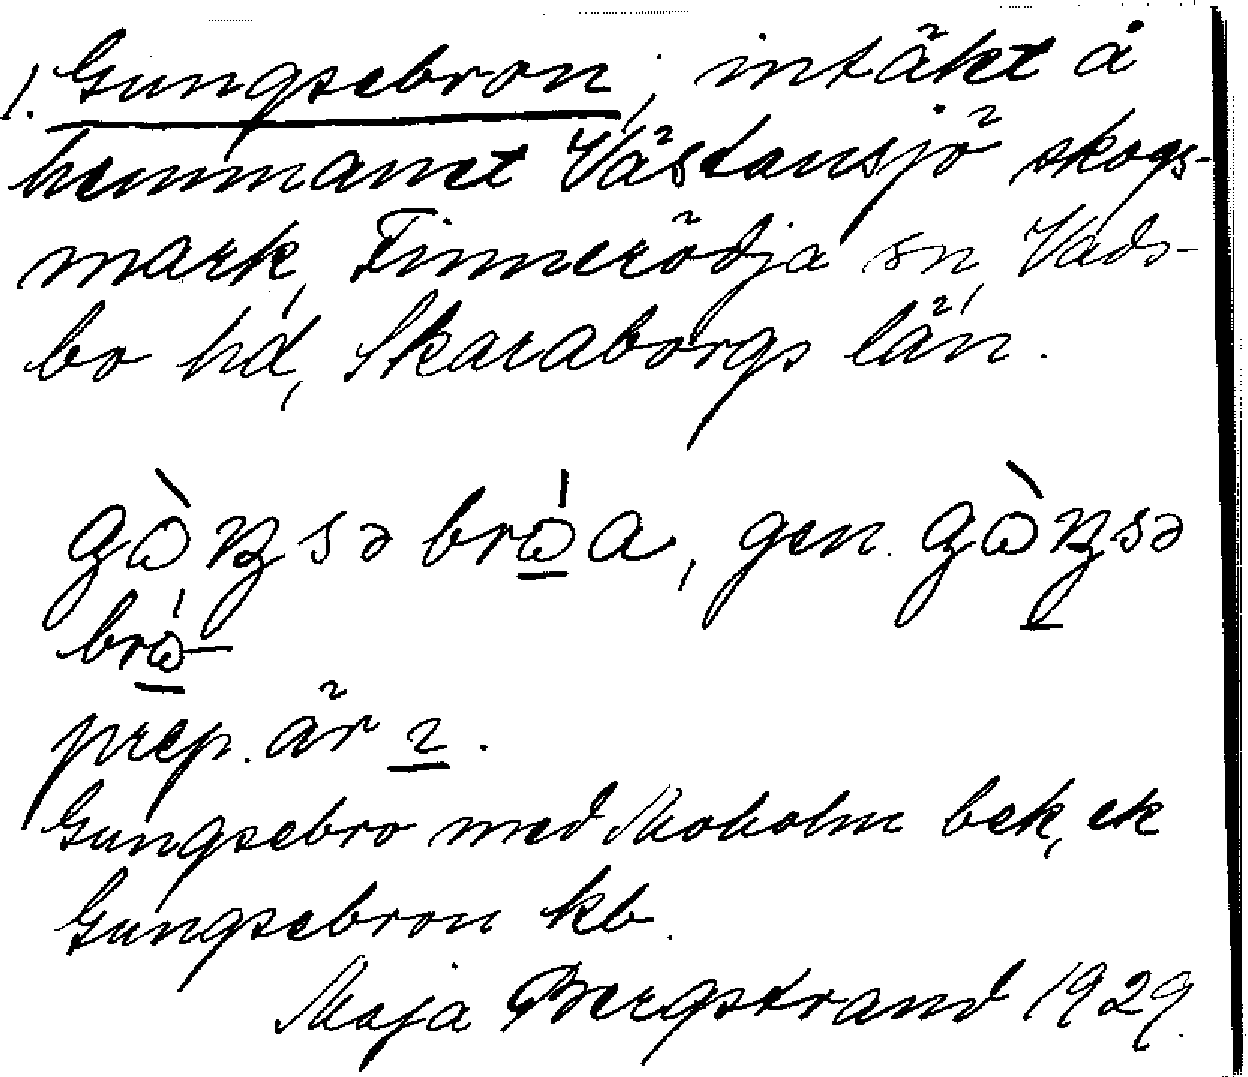 1. Gungsebron, intäkt å
hemmanet Västansjö skogs-
mark, Finnerödja sn, Vads-
bo hd, Skaraborgs län.
gen.
prep. är 2.
Gungsebro med Moholm bek, ek
Gungsebron kb.
Maja Bergstrand 1929.